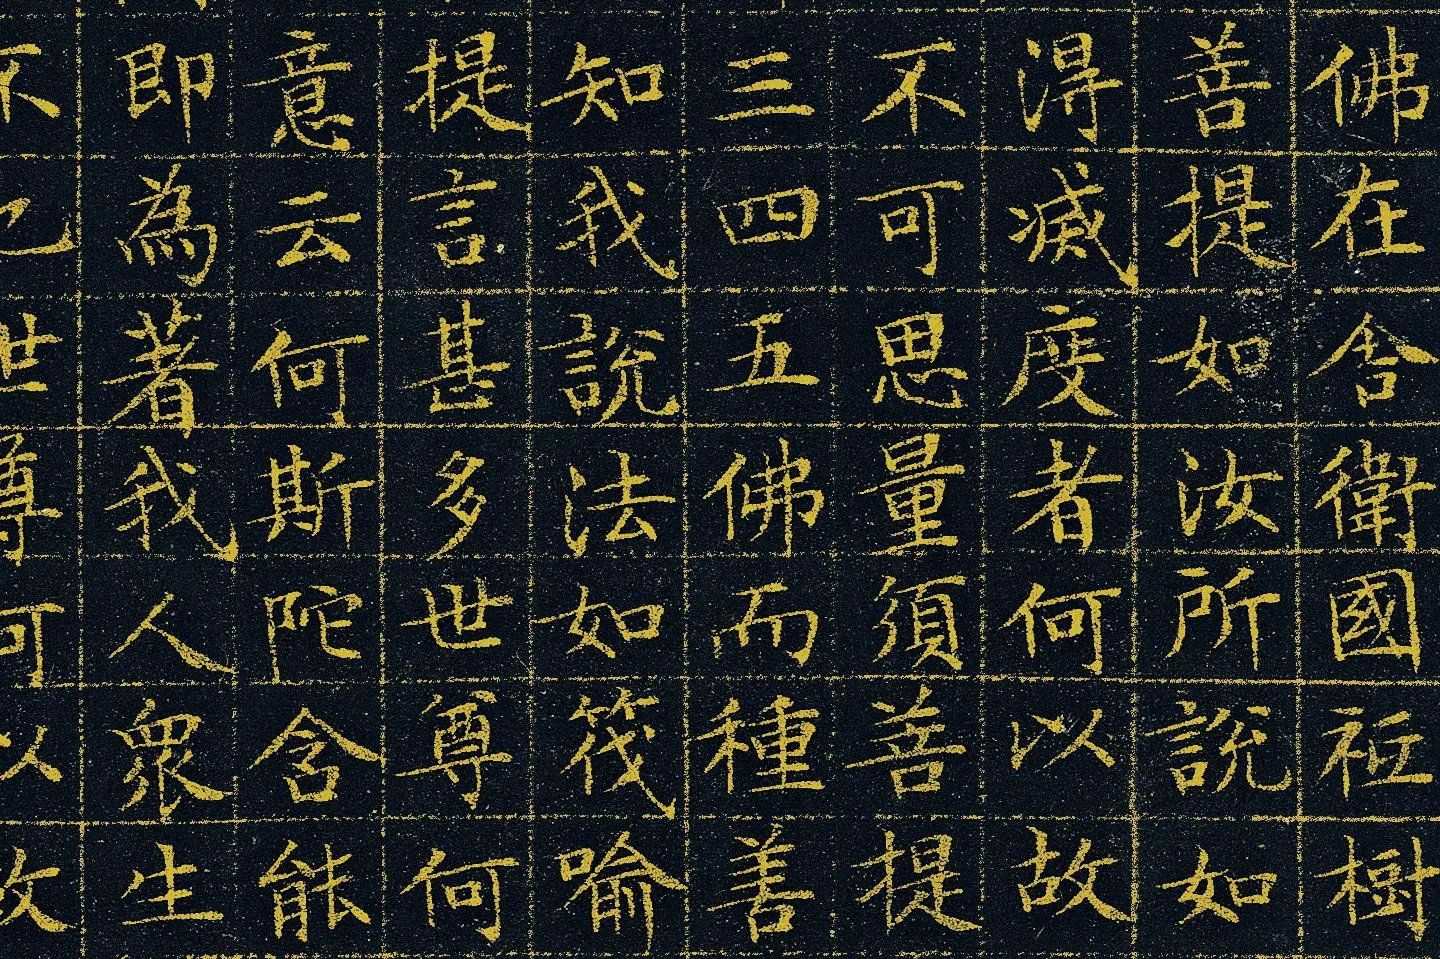 佛在舍衛國祇樹
善提如汝所說如
得滅度者何以故
不可思量須善提
三四五佛而種善
知我說法如筏喻
提言甚多世尊何
意云何斯陀含能
即為著我人眾生
不已世尊何以故